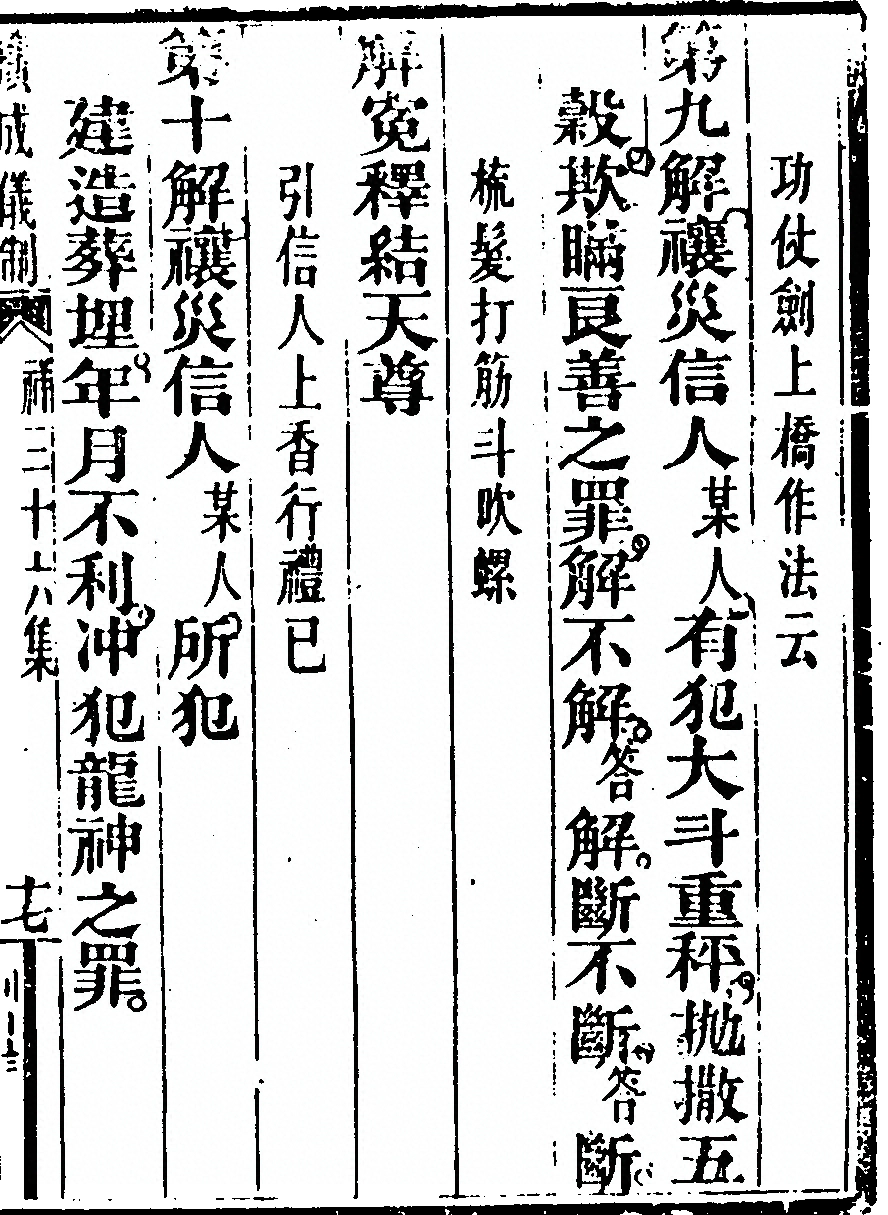 功仗劍上橋作法云
第九解禳災信人某人有犯大斗重秤拋撒五
穀欺瞞良善之罪解不解答解斷不斷答斷
梳髮打筋斗吹螺
解寃釋結天尊
引信人上香行禮已
第十解禳災信人某人所犯
建造葬埋年月不利冲犯龍神之罪
成儀制 補三十六集 十七